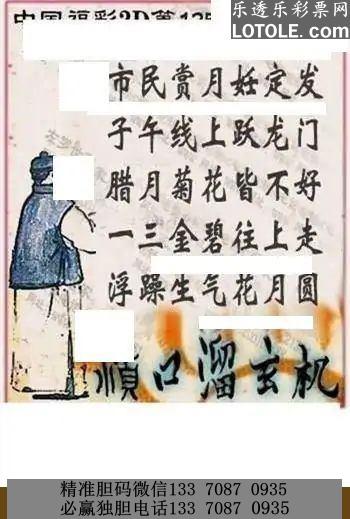 乐透乐彩票网
LOTOLE.COM
中国福彩3D第
市民赏月妊定发
子午线上跃龙门
腊月菊花皆不好
一三金碧往上走
浮躁生气花月圆
顺口溜玄机
精准胆码微信133 7087 0935
必赢独胆电话133 7087 0935